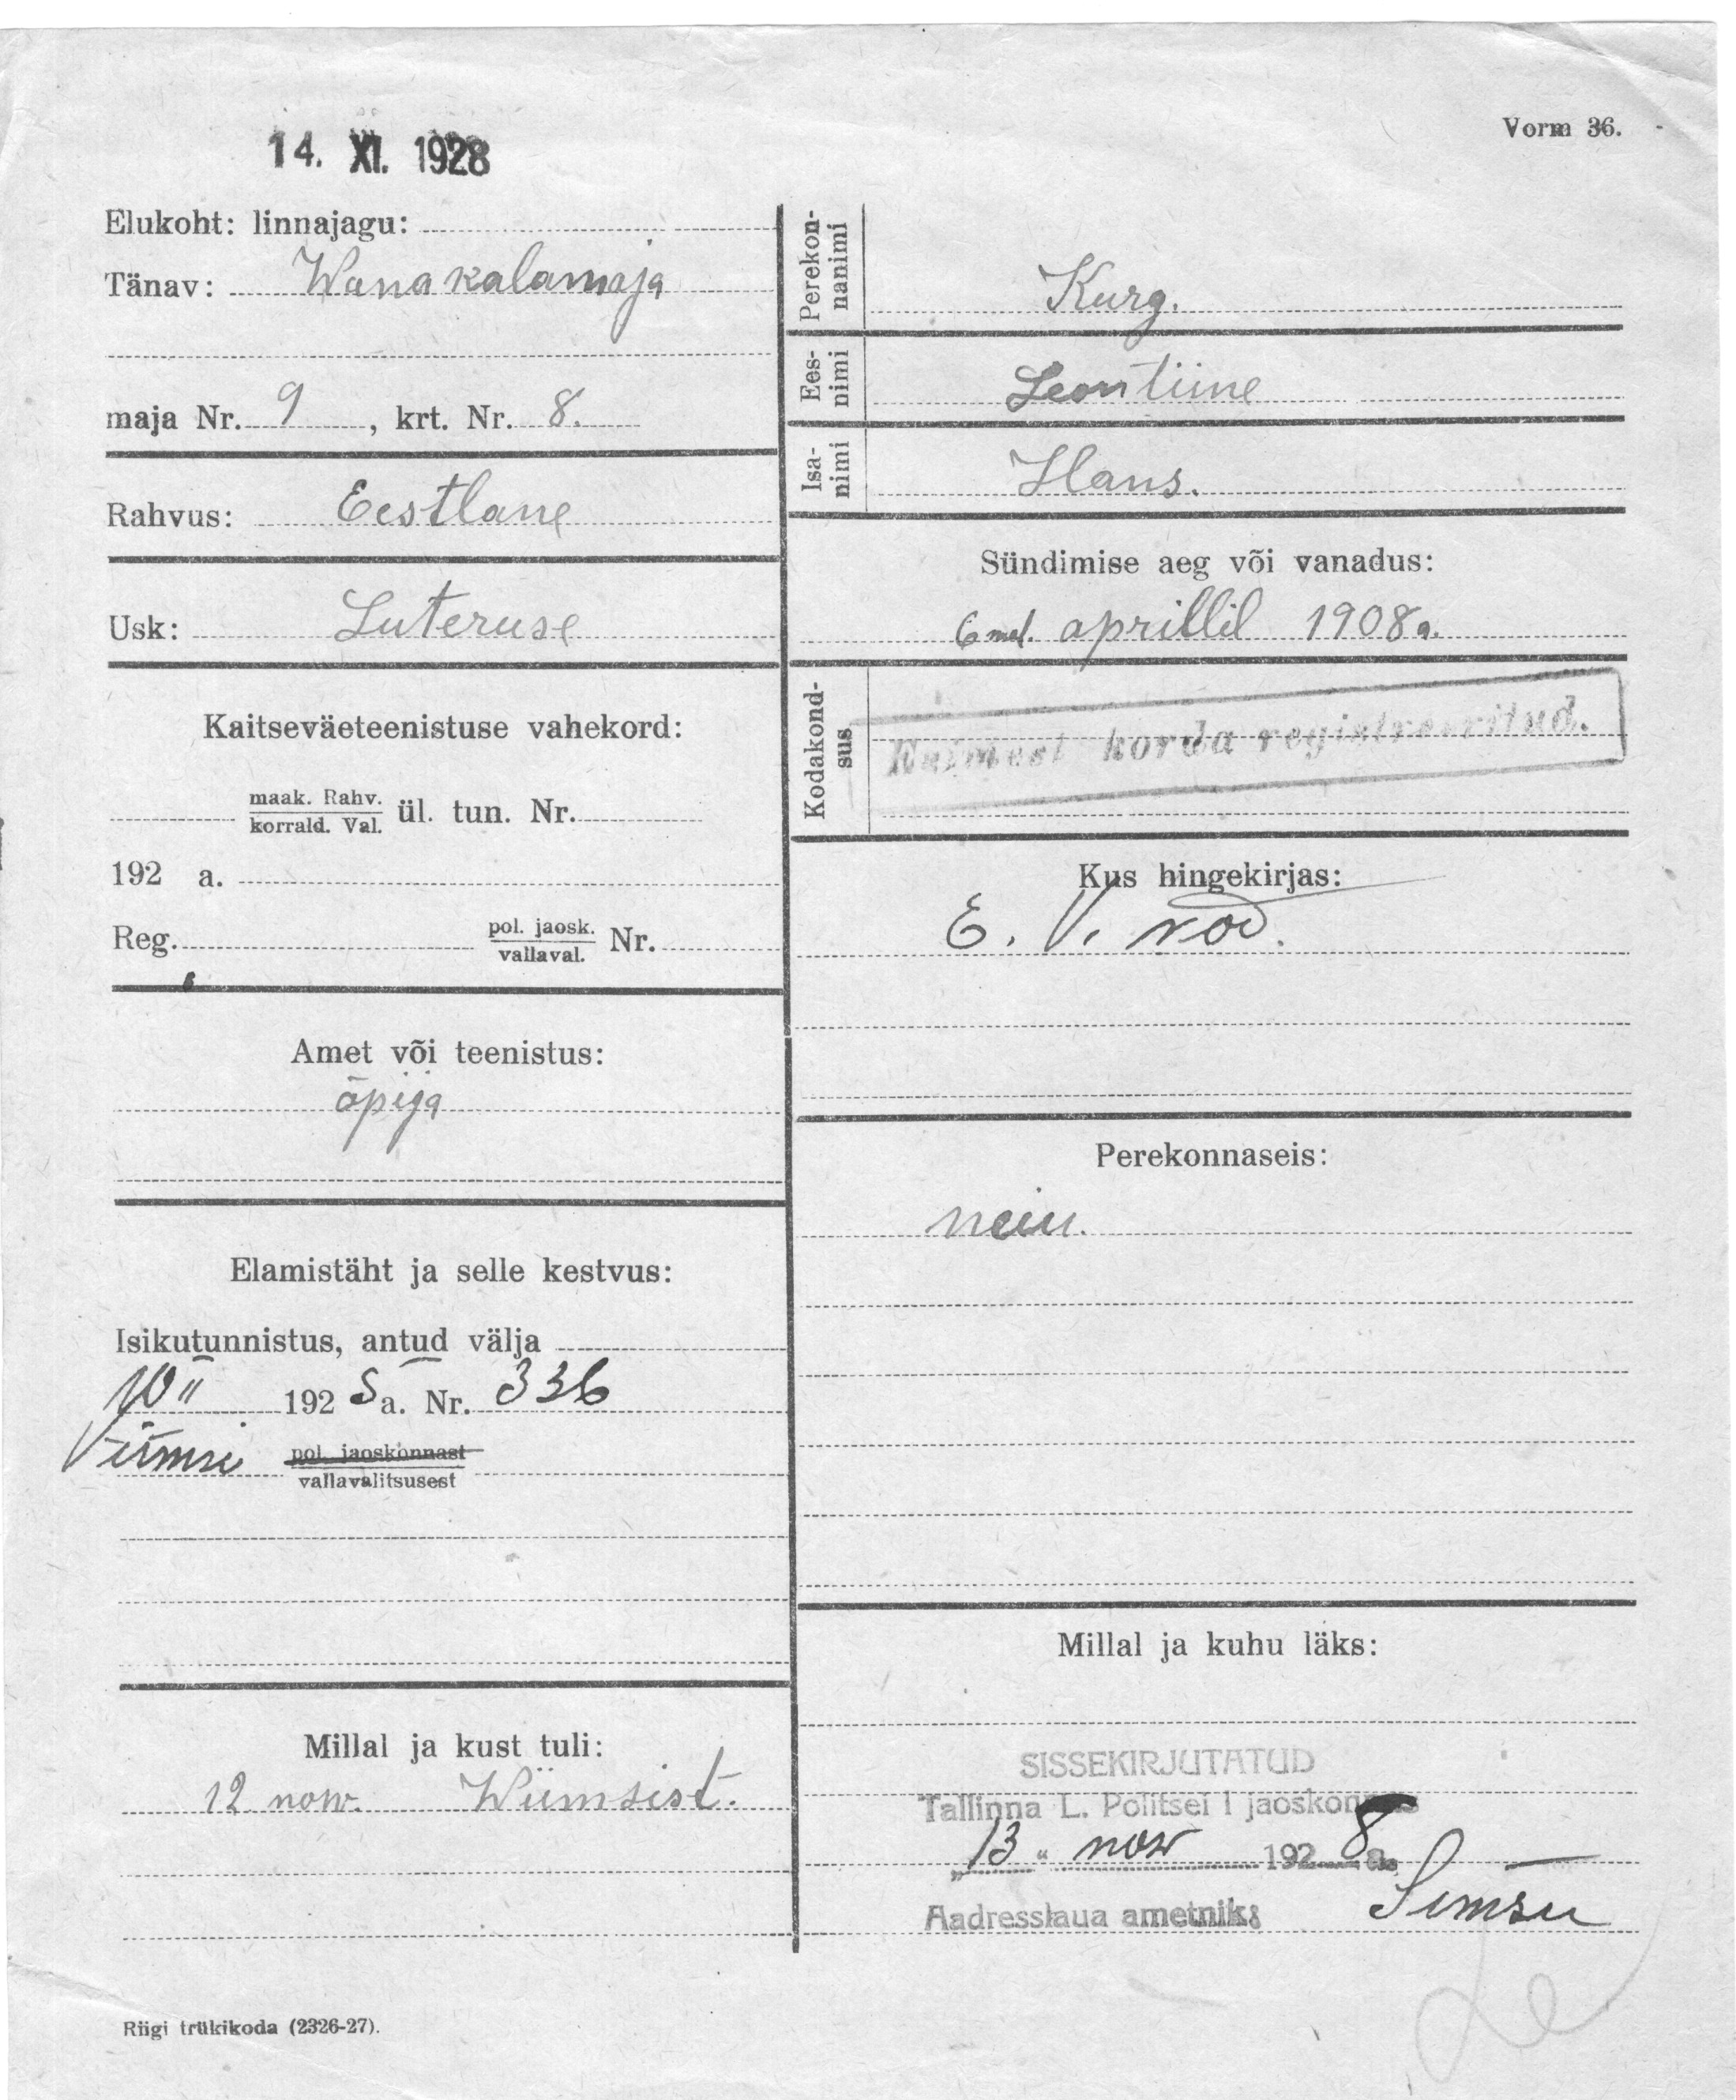 Vorm 36.
14. XI. 1928
Elukoht: linnajagu:
Tänav: Wana kalamaja
maja Nr. 9, krt. Nr. 8.
Rahvus: Eestlane
Usk: Luteruse
Kaitseväeteenistuse vahekord:
maak. Rahv.
korrald. Val. ül. tun. Nr.
192 a.
Reg. pol. jaosk. Nr.
vallaval.
Amet või teenistus:
õpija
Elamistäht ja selle kestvus:
Isikutunnistus, antud välja
192 5 a. Nr. 336
Viimsi pol. jaoskonnast
vallavalitsusest
Millal ja kust tuli:
12 now. Wiimsist.
Riigi trükikoda (2326-27).
Perekon-
nanimi
Kurg.
Ees-
nimi
Leontiine
Isa-
nimi
Hans.
Sündimise aeg või vanadus:
6 mel. aprillil 1908 a.
Kodakond-
sus
Esimest korda registreeritud.
Kus hingekirjas:
E. V. kod.
Perekonnaseis:
neiu.
Millal ja kuhu läks:
SISSEKIRJUTATUD
Tallinna L. Politsei I jaoskonnas
„13" now 192 8 a.
Aadresslaua ametnik: